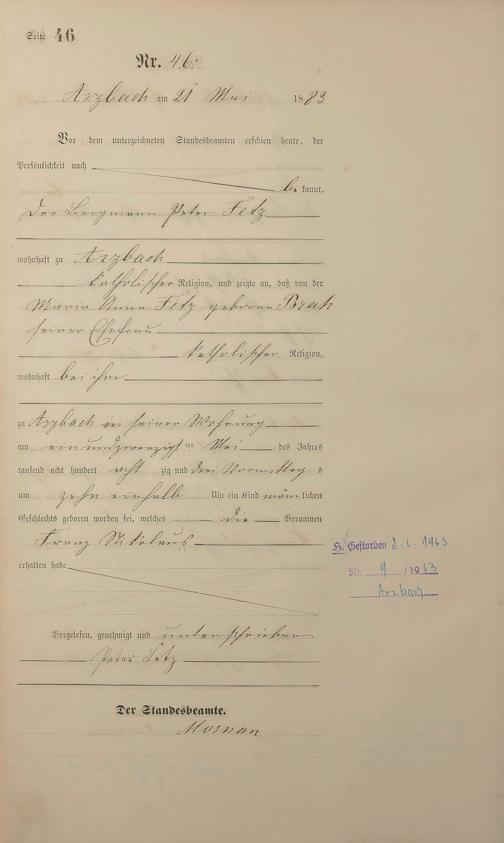 Seite 46
Nr. 46.
Arzbach am 21 Mai 1883
Vor dem unterzeichneten Standesbeamten erschien heute, der
Persönlichkeit nach
be kannt,
Der Bergmann Peter Fetz
wohnhaft zu Arzbach
katholischer Religion, und zeigte an, daß von der
Maria Anna Fetz geborene
seiner Ehefrau
katholischer Religion,
wohnhaft bei ihm
zu Arzbach in seiner Wohnung
am einundzwanzigsten Mai des Jahres
tausend acht hundert achtzig und drei Vormittags
um zehn einhalb Uhr ein Kind männlichen
Geschlechts geboren worden sei, welches die Vornamen
Franz Nikolaus
erhalten habe
H. Gestorben 2.6.1963
Nr. 9 /1963
Arzbach
Vorgelesen, genehmigt und unterschrieben
Peter Fetz
Der Standesbeamte.